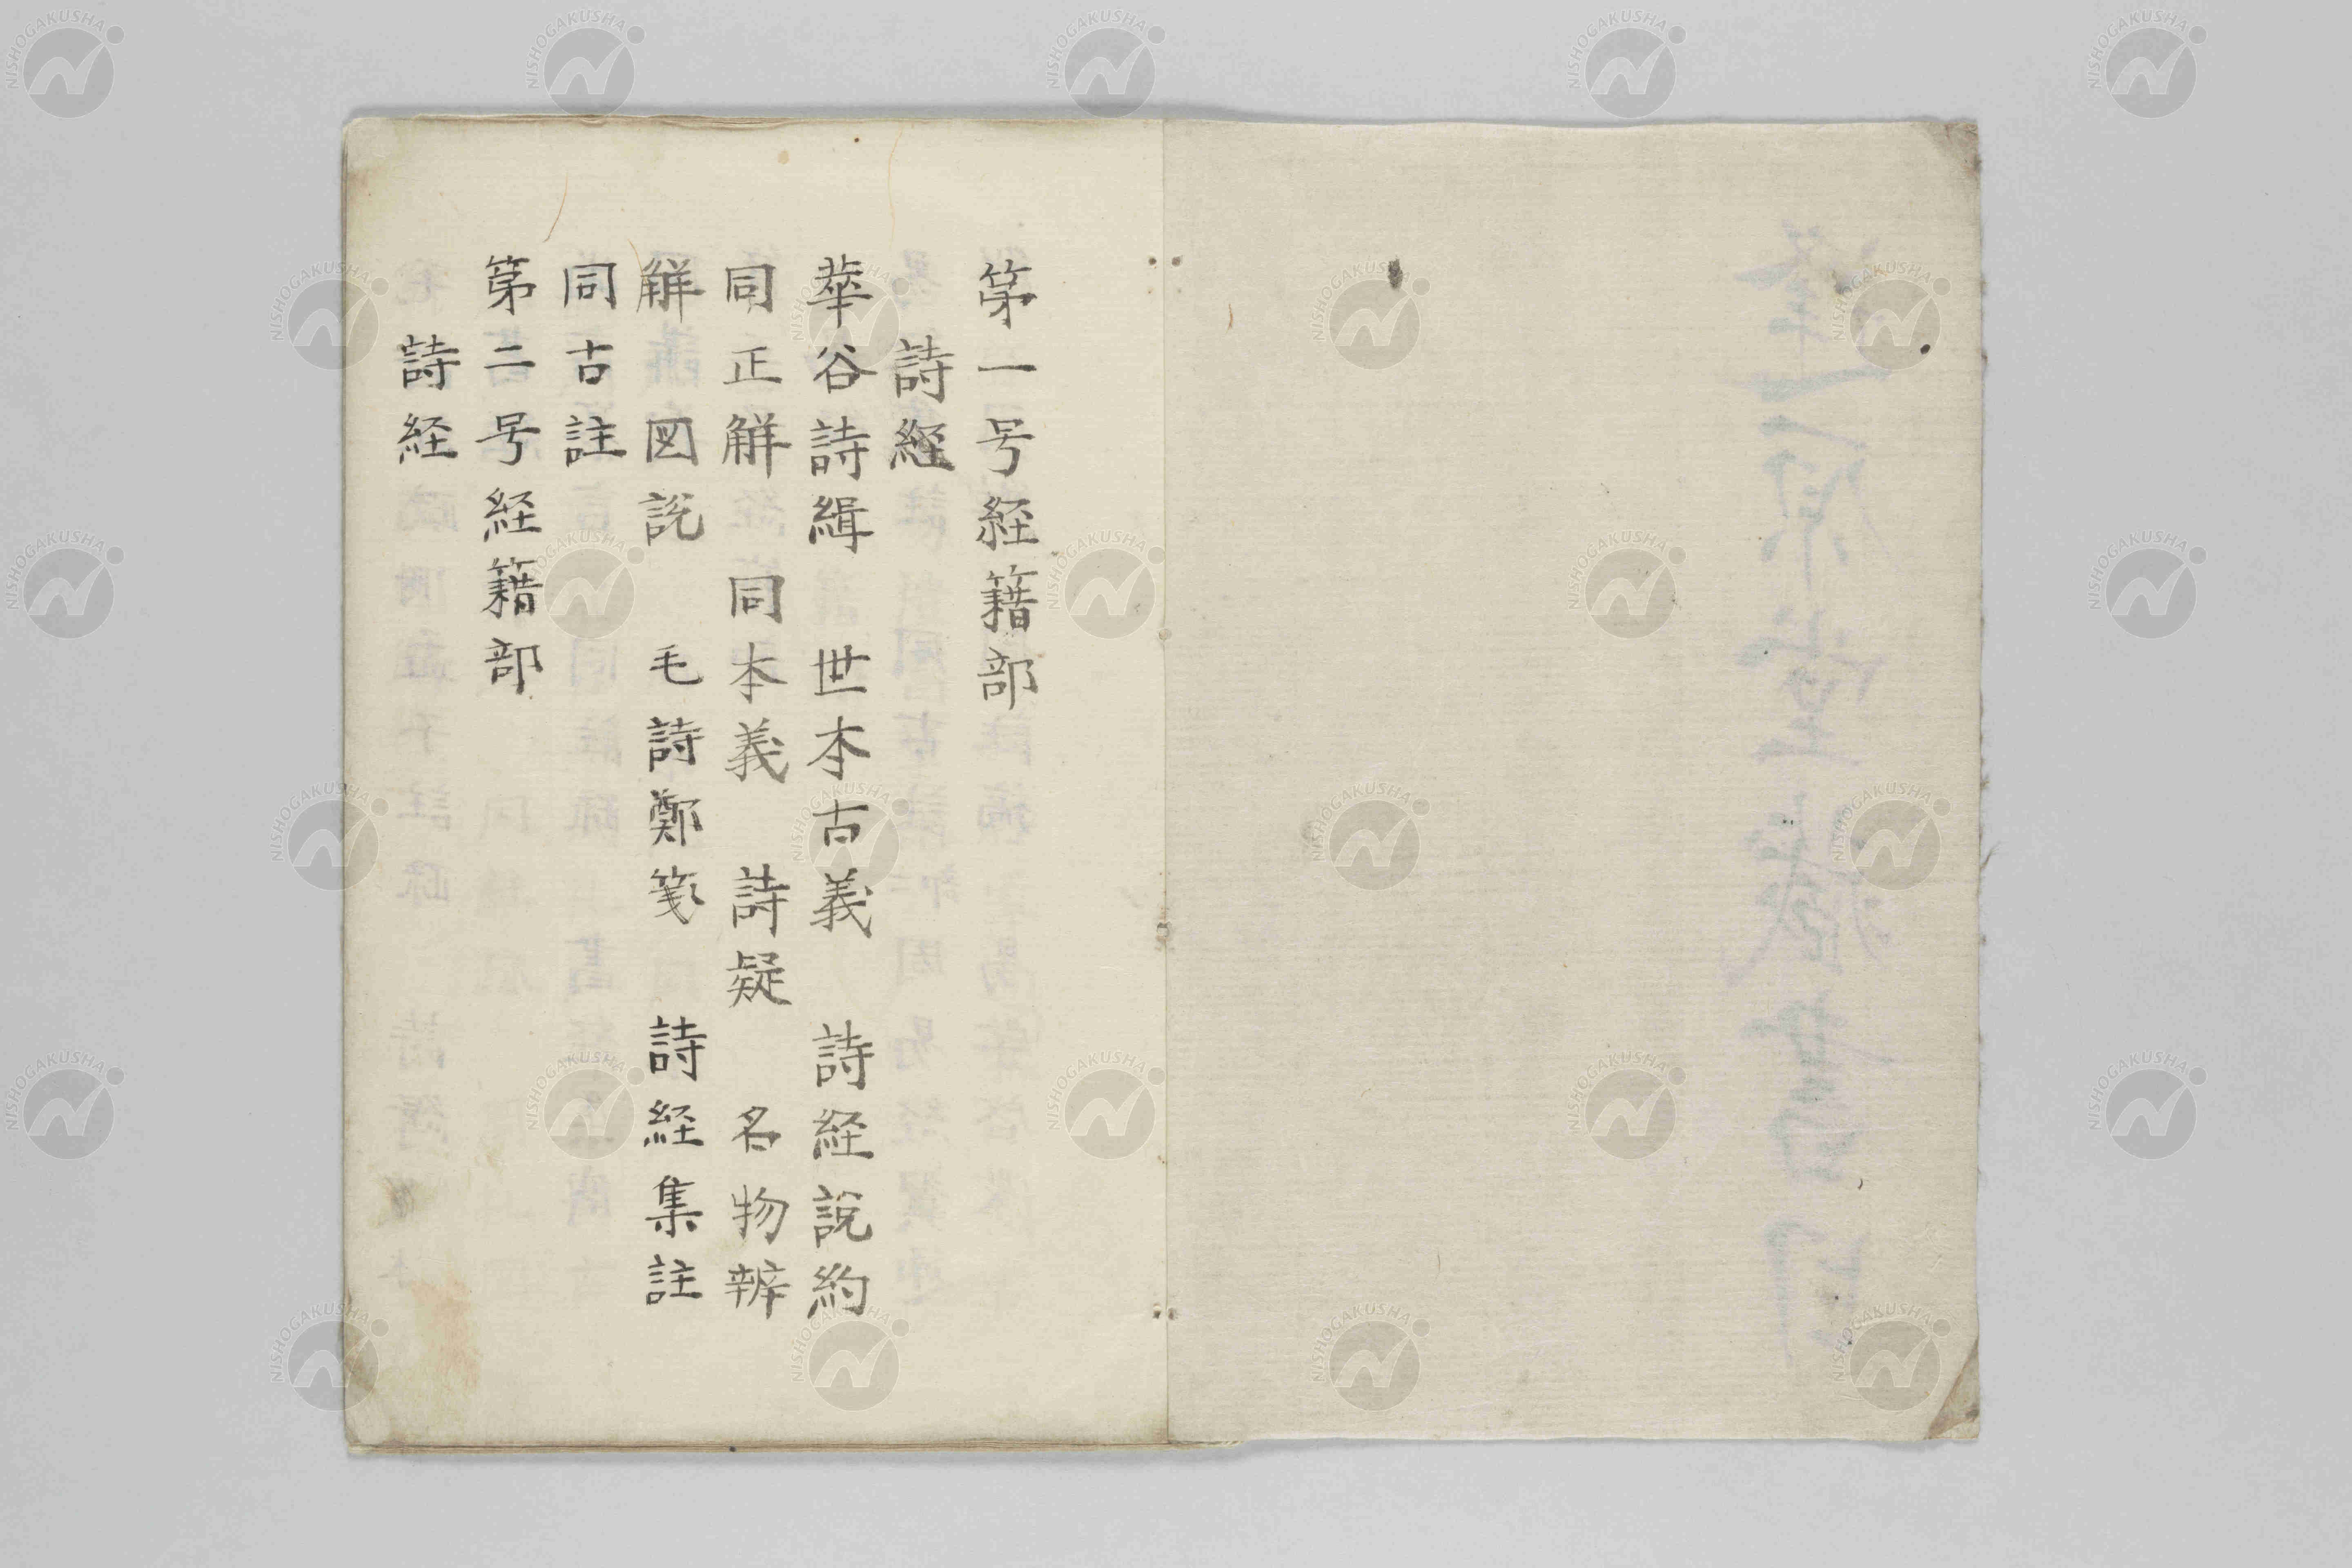 第一号経籍部
詩経
華谷詩緝　世本古義　詩経説約
同正解　同本義　詩疑　名物辨
解図説　毛詩鄭箋　詩経集註
同古註
第二号経籍部
詩経
NISHOGAKUSHA